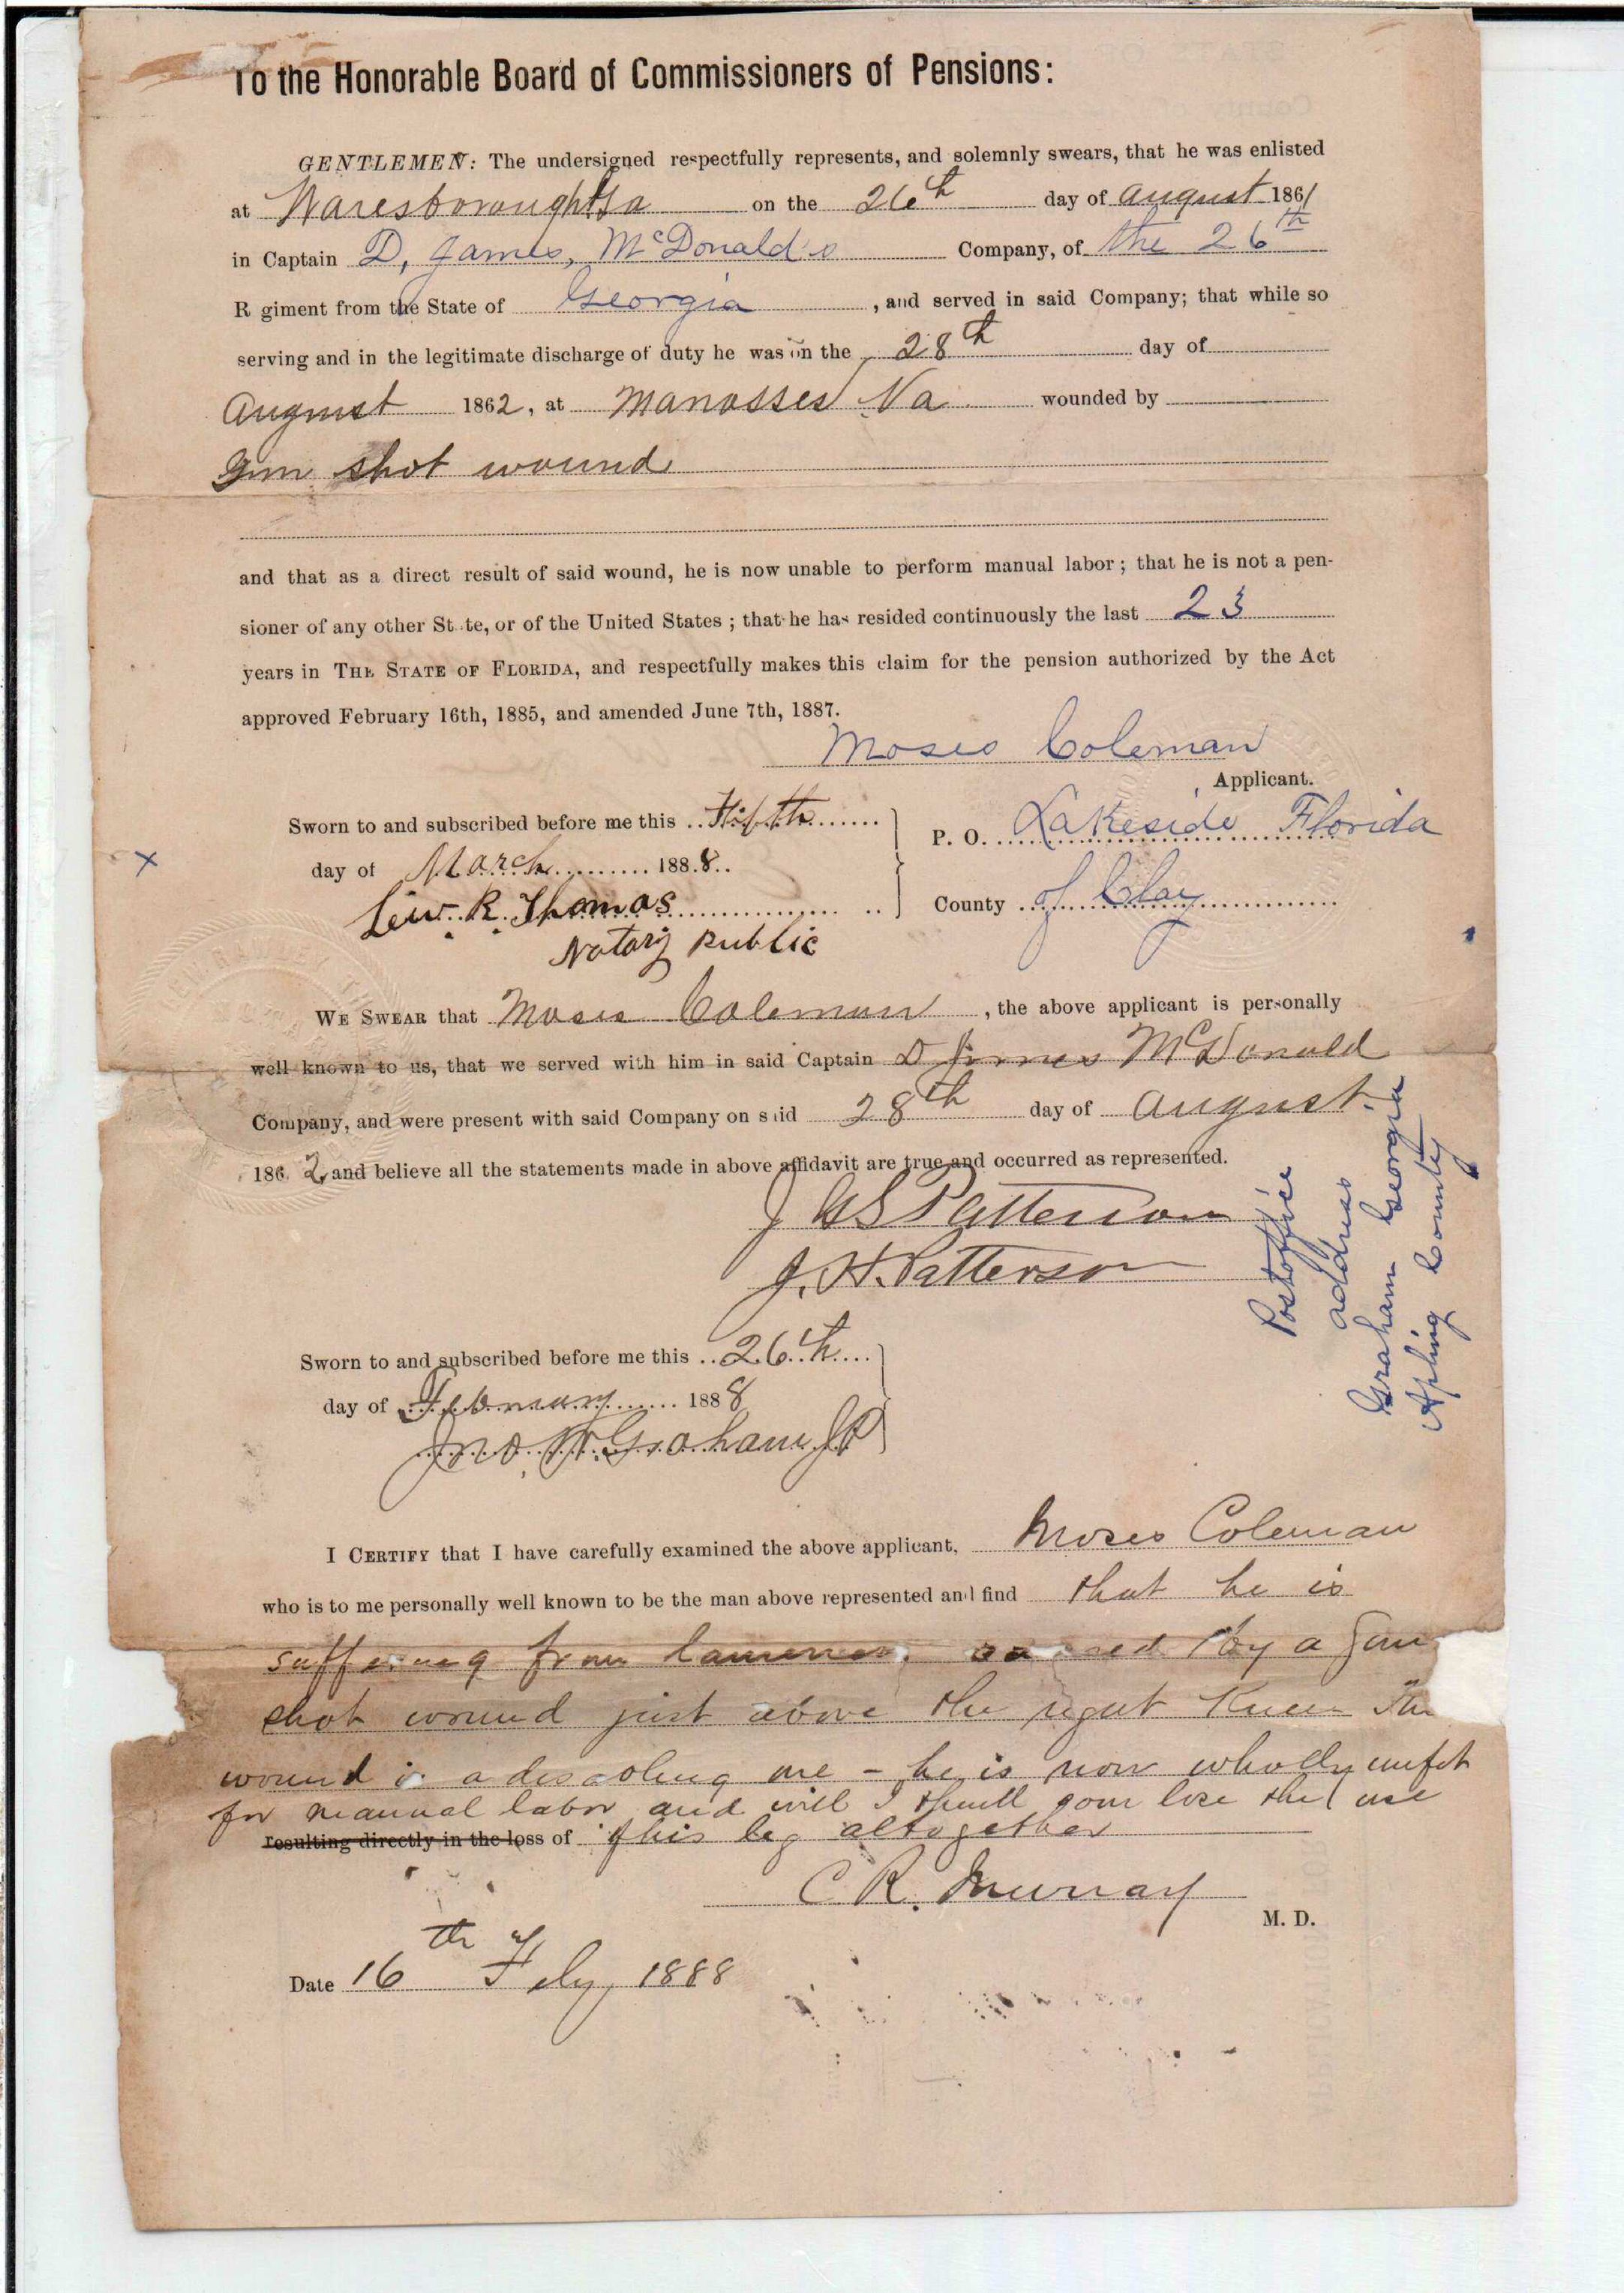 To the Honorable Board of Commissioners of Pensions:
GENTLEMEN: The undersigned respectfully represents, and solemnly swears, that he was enlisted
at Waresborough Ga on the 26th day of August 1861
in Captain D, James, McDonald's Company, of the 26th
R giment from the State of Georgia , and served in said Company; that while so
serving and in the legitimate discharge of duty he was on the 28th day of
August 1862, at Manasses Va wounded by
Gun shot wound
and that as a direct result of said wound, he is now unable to perform manual labor; that he is not a pen-
sioner of any other St te, or of the United States; that he has resided continuously the last 23
years in THE STATE OF FLORIDA, and respectfully makes this claim for the pension authorized by the Act
approved February 16th, 1885, and amended June 7th, 1887.
Moses Coleman
Applicant.
Sworn to and subscribed before me this Fifth
day of March 1888
Lew. R. Thomas
Notary Public
P. O. Lakeside Florida
County of Clay
WE SWEAR that Moses Coleman , the above applicant is personally
well known to us, that we served with him in said Captain D James McDonald
Company, and were present with said Company on s id 28th day of August
1862, and believe all the statements made in above affidavit are true and occurred as represented.
J Patterson
J. H. Patterson
Postoffice
address
Graham Georgia
Apling County
Sworn to and subscribed before me this 26th
day of February 1888
Jno. W. Graham JP
I CERTIFY that I have carefully examined the above applicant, Moses Coleman
who is to me personally well known to be the man above represented and find that he is
suffering from lameness by a Gun
shot wound just above the right Knee The
wound is a disabling one - he is now wholly unfit
for manual labor and will I think soon lose the use
resulting directly in the loss of of his leg altogether
C R. Murray
M. D.
Date 16th Feby 1888